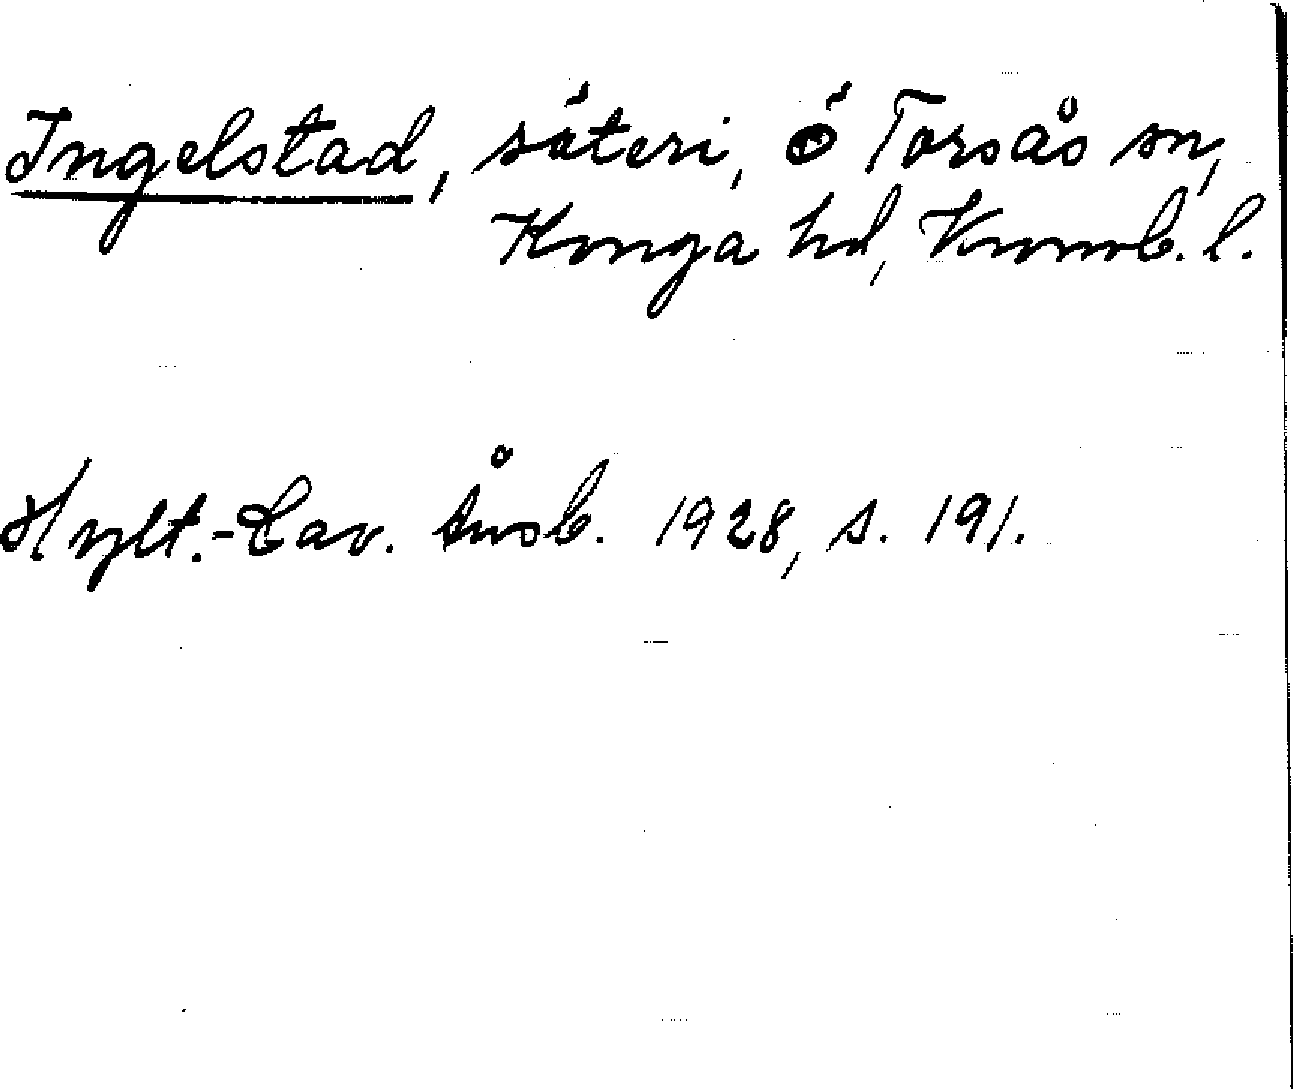 Ingelstad, säteri, Ö Torsås sn,
Konga hd, Kronob. l.
Hylt.-Cav. Årsb. 1928, s. 191.